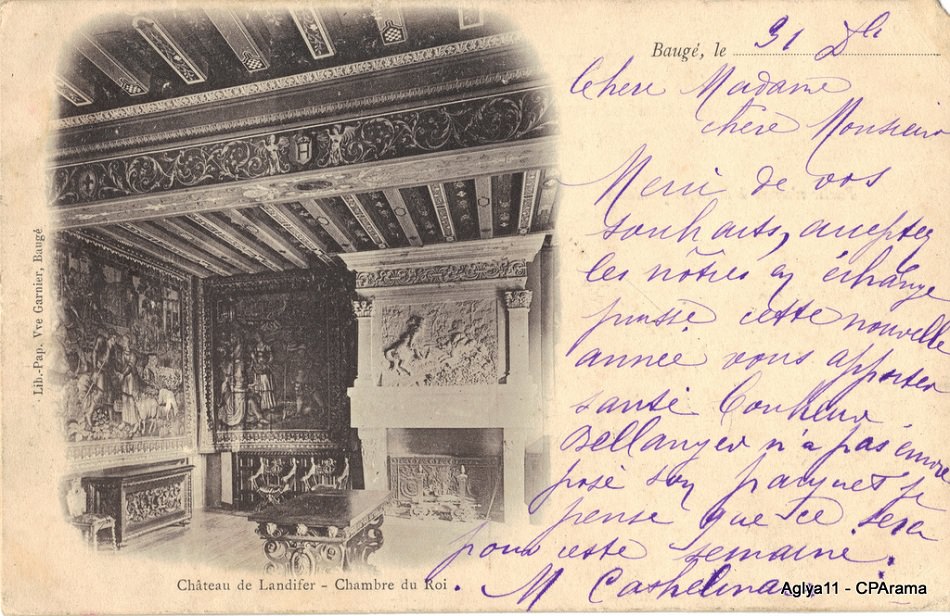 Baugé, le 31 Xbre
Chere Madame
chere Monsieur
Merci de vos
souhaits, acceptez
les nôtres en échange
puisse cette nouvelle
année vous apporter
santé bonheur
Bellanger n'a pas encore
posé son parquet je
pense que ce sera
pour cette semaine.
M
Lib.-Pap. Vve Garnier, Baugé
Château de Landifer - Chambre du Roi.
Aglya11 - CPArama